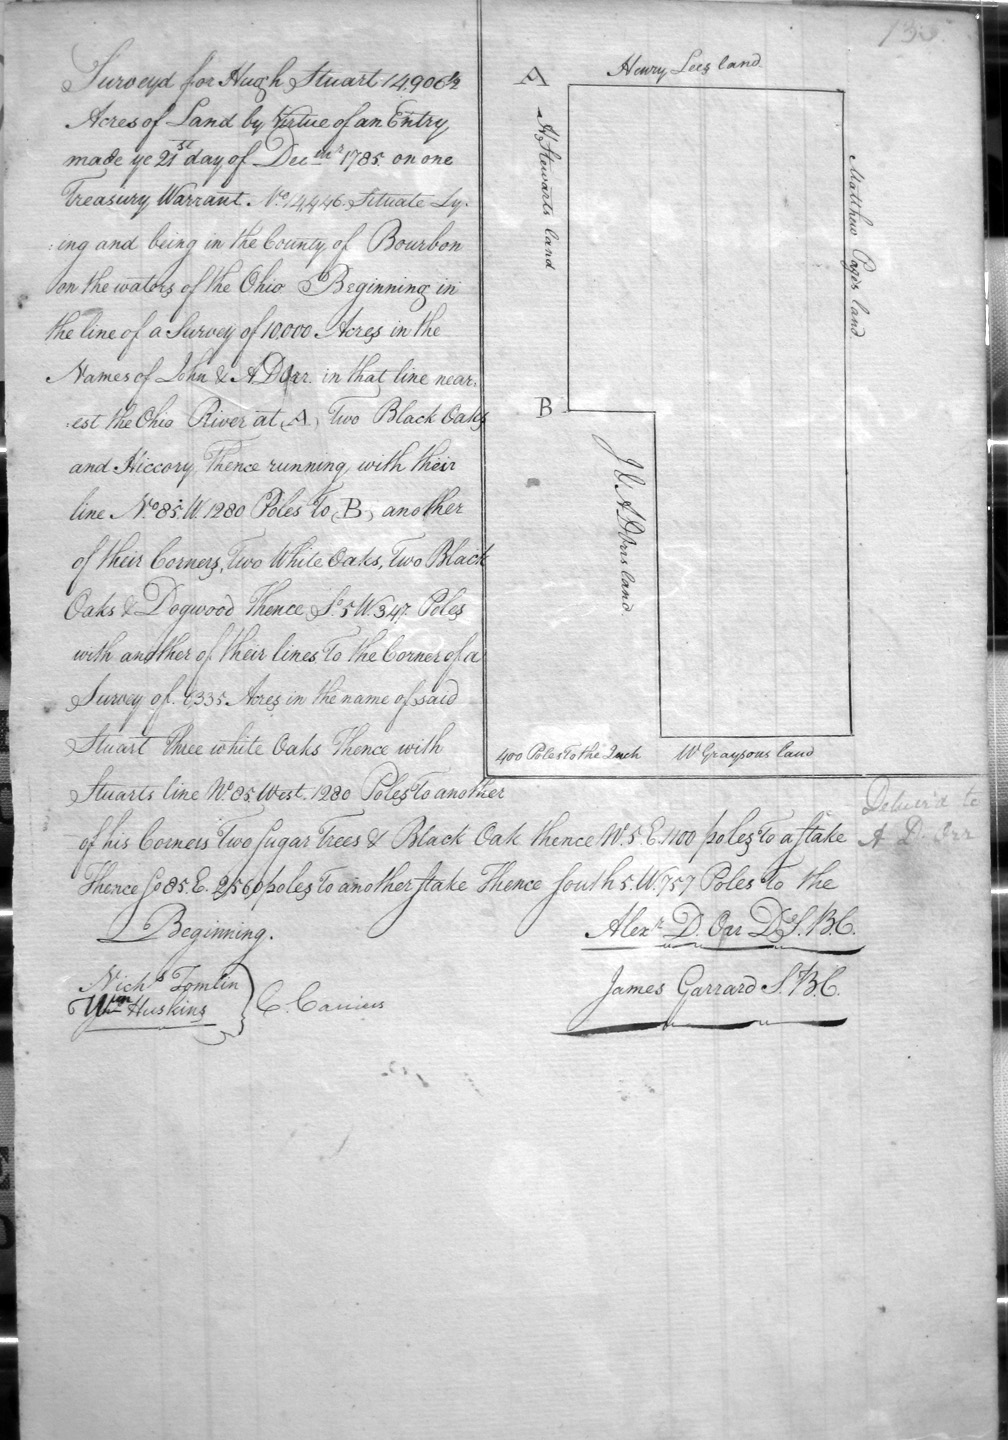 Survey'd for Hugh Stuart 14,906½
Acres of Land by Virtue of an Entry
made ye 21st day of Decmr 1785. on one
Treasury Warrant. No. 14,446 Situate Ly-
:ing and being in the County of Bourbon
on the waters of the Ohio Beginning in
the line of a Survey of 10,000 Acres in the
Names of John & A D Orr. in that line near:
:est the Ohio River at (A) Two Black Oaks
and Hiccory, Thence running with their
line No. 85. W. 1280 Poles to (B) another
of their Corners, Two White Oaks, Two Black
Oaks & Dogwood Thence So. 5 W. 347. Poles
with another of their lines To the Corner of a
Survey of. 1,335 Acres in the name of said
Stuart Three white Oaks Thence with
Stuarts line No. 85. West. 1280 Poles to another
of his Corners Two Sugar Trees & Black Oak thence N. 5. E. 1100 poles to a Stake
Thence So 85. E. 2,560 poles to another Stake Thence South 5. W. 757 Poles To the
Beginning.
Alexr. D. Orr D.S.B.C.
Nichs Tomlin
Wm Huskins
C. Carriers
James Garrard S.B.C.
A
Henry Lees land.
H Stewarts land
Matthew Pages land
B
J & A D Orrs land
400 Poles To the Inch
W Graysons land
Deliver'd to
A D. Orr